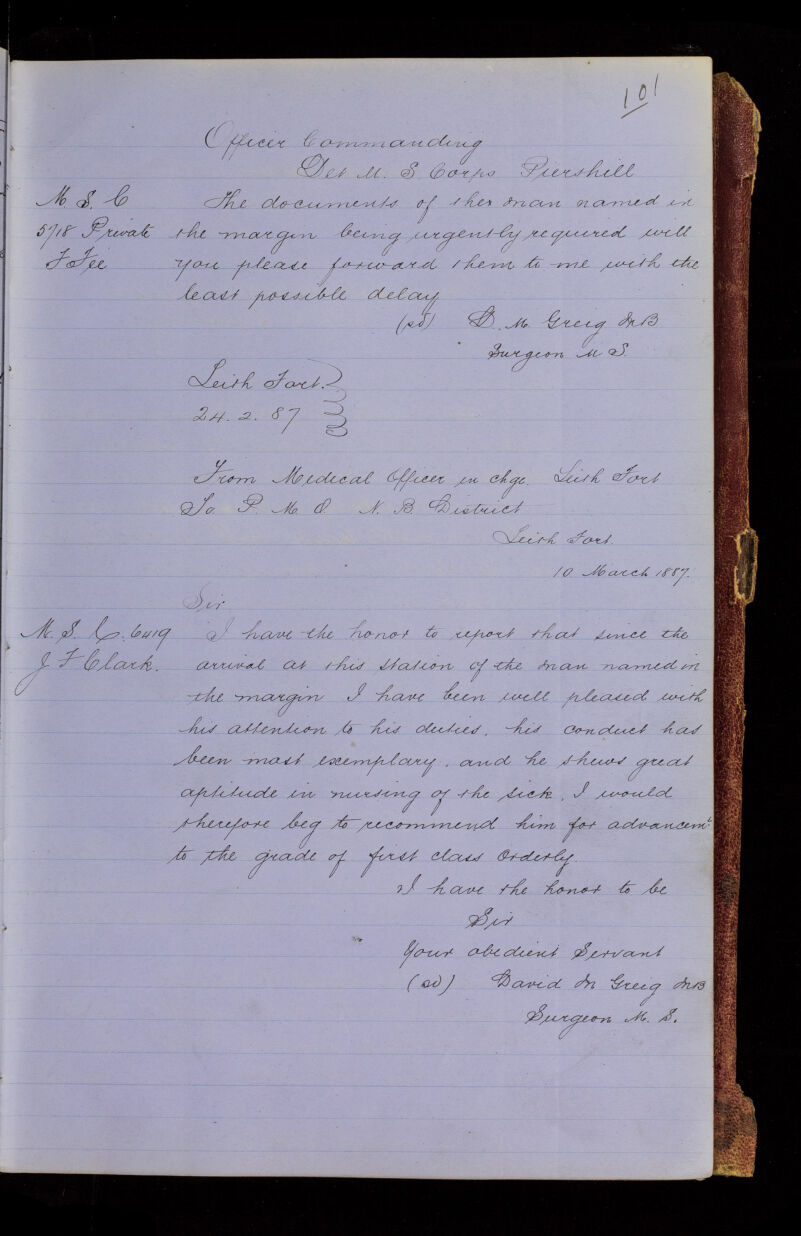 101
Officer Commanding
Det M. S. Corps Piershill
M S. C
5718 Private
F Fee
The documents of ther man named in
the margin being urgently required will
you please forward them to me with the
least possible delay
(sd) D. M. Greig MB
Surgeon M S
Leith Fort.
24. 2. 87
From Medical Officer in chge. Leith Fort
To P. M. O N. B. District
Leith Fort
10 March 1887.
Sir
M. S. C. 6419
J F Clark.
I have the honor to report that since the
arrival at this station of the man named in
the margin I have been well pleased with
his attention to his duties, his conduct has
been most exemplary, and he shews great
aptitude in nursing of the sick. I would
therefore beg to recommend him for advancemt
to the grade of first class Orderly
I have the honor to be
Sir
Your obedient Servant
(sd) David M Greig MB
Surgeon M. S.